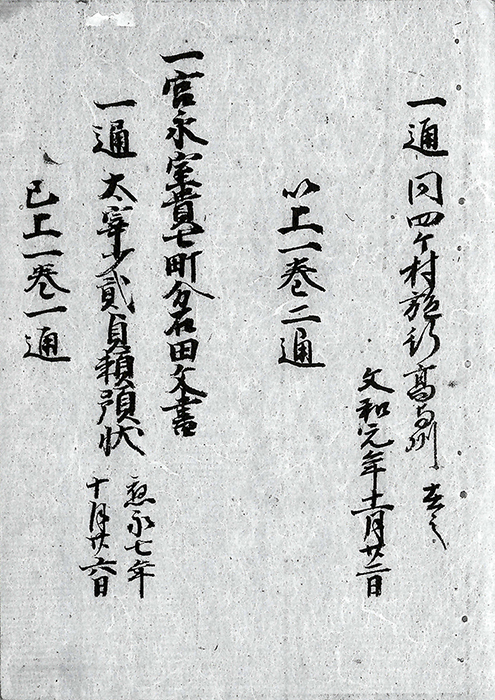 一通 同四ケ村施行 高
文和元年十一月廿二日
以上一巻二通
一宮永室貴七町分石田文書
一通 太宰少貳貞頼預状
応永七年
十月廿六日
已上一巻一通